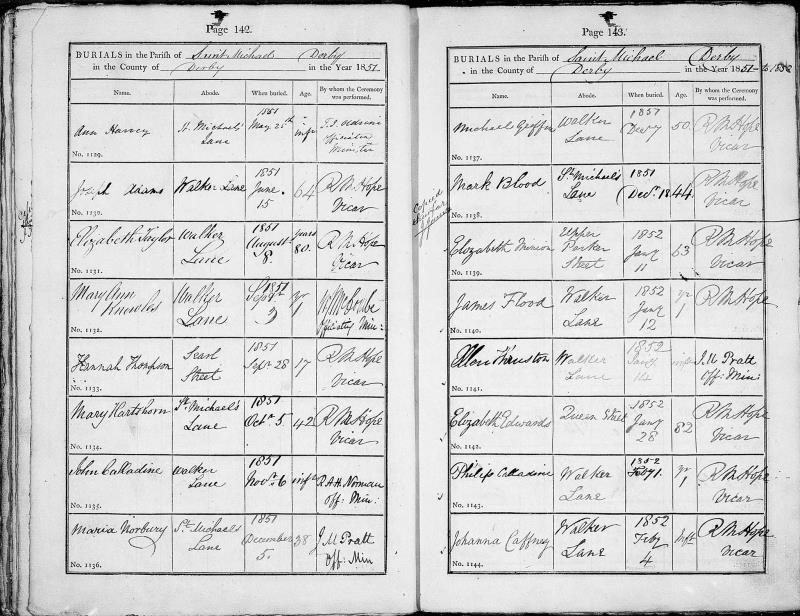 Page 142.
BURIALS in the Parish of Saint Michael Derby
in the County of Derby in the Year 1851
Name. Abode. When buried. Age. By whom the Ceremony was performed.
Ann Harvey St. Michael's Lane 1851 May 25th inft Officiating Minister
No. 1129.
Joseph Adams Walker Lane 1851 June 15 64 R M Hope Vicar
No. 1130.
Elizabeth Taylor Walker Lane 1851 August 8. years 80. R M Hope Vicar
No. 1131.
Mary Ann Knowles Walker Lane 1851 Septr 3 yr 1 Officiatg Min:
No. 1132.
Hannah Thompson Searl Street 1851 Sepr 28 17 R M Hope Vicar
No. 1133.
Mary Hartshorn St. Michael's Lane 1851 Octr 5. 42 R M Hope Vicar
No. 1134.
John Calladine Walker Lane 1851 Novr 6 inft R A H. Norman Off: Min:
No. 1135.
Maria Norbury St. Michaels Lane 1851 December 5. 38 J M Pratt Off: Min
No. 1136.
Page 143.
BURIALS in the Parish of Saint Michael Derby
in the County of Derby in the Year 1851 to 1852
Name. Abode. When buried. Age. By whom the Ceremony was performed.
Michael Walker Lane 1851 50 R M Hope Vicar
No. 1137.
Mark Blood St. Michael's Lane 1851 Decr. 18 44 R M Hope Vicar
No. 1138.
Copied
Elizabeth Upper Parker Street 1852 Jany 11 63 R M Hope Vicar
No. 1139.
James Flood Walker Lane 1852 Jany 12 yr 1 R M Hope Vicar
No. 1140.
Ellen Walker Lane 1852 Jany 14 inft J. M Pratt Off: Min:
No. 1141.
Elizabeth Edwards Queen Street 1852 Jany 28 82 R M Hope Vicar
No. 1142.
Philip Calladine Walker Lane 1852 Feby 1. yr 1 R M Hope Vicar
No. 1143.
Johanna Caffney Walker Lane 1852 Feby 4 inft R M Hope Vicar
No. 1144.